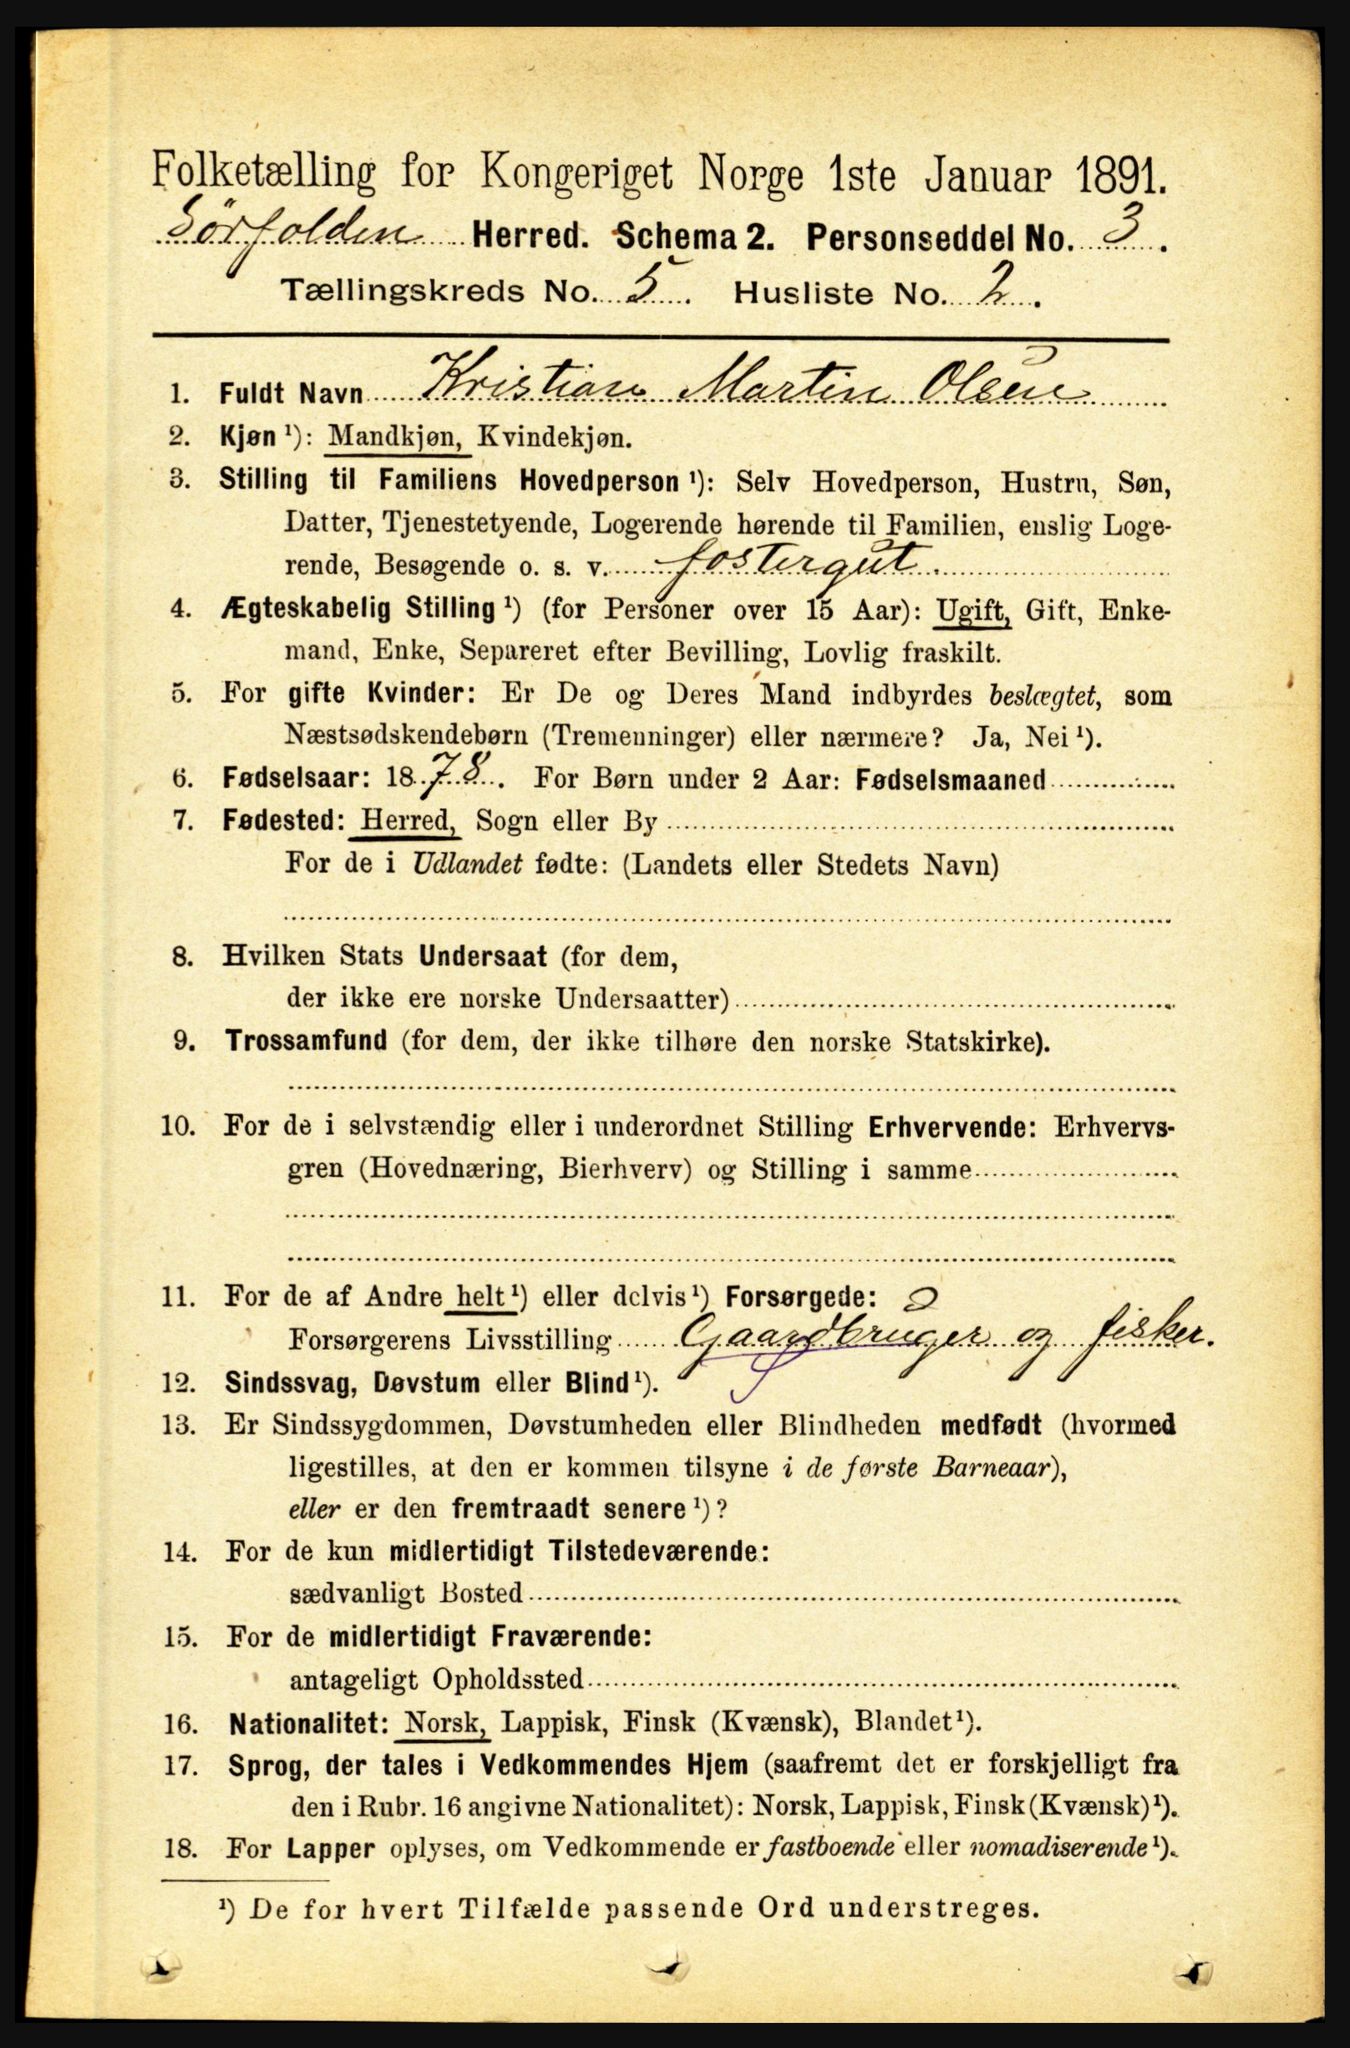 Folketælling for Kongeriget Norge 1ste Januar 1891.
Sörfolden Herred. Schema 2. Personseddel No. 3.
Tællingskreds No. 5. Husliste No. 2.
1. Fuldt Navn Kristian Martin Olsen
2. Kjøn ¹): Mandkjøn, Kvindekjøn.
3. Stilling til Familiens Hovedperson ¹): Selv Hovedperson, Hustru, Søn,
Datter, Tjenestetyende, Logerende hørende til Familien, enslig Loge-
rende, Besøgende o. s. v. fostergut.
4. Ægteskabelig Stilling ¹) (for Personer over 15 Aar): Ugift, Gift, Enke-
mand, Enke, Separeret efter Bevilling, Lovlig fraskilt.
5. For gifte Kvinder: Er De og Deres Mand indbyrdes beslægtet, som
Næstsødskendebørn (Tremenninger) eller nærmere? Ja, Nei ¹).
6. Fødselsaar: 1878. For Børn under 2 Aar: Fødselsmaaned
7. Fødested: Herred, Sogn eller By
For de i Udlandet fødte: (Landets eller Stedets Navn)
8. Hvilken Stats Undersaat (for dem,
der ikke ere norske Undersaatter)
9. Trossamfund (for dem, der ikke tilhøre den norske Statskirke).
10. For de i selvstændig eller i underordnet Stilling Erhvervende: Erhvervs-
gren (Hovednæring, Bierhverv) og Stilling i samme
11. For de af Andre helt ¹) eller delvis ¹) Forsørgede:
Forsørgerens Livsstilling Gaardbruger og fisker.
12. Sindssvag, Døvstum eller Blind ¹).
13. Er Sindssygdommen, Døvstumheden eller Blindheden medfødt (hvormed
ligestilles, at den er kommen tilsyne i de første Barneaar),
eller er den fremtraadt senere ¹)?
14. For de kun midlertidigt Tilstedeværende:
sædvanligt Bosted
15. For de midlertidigt Fraværende:
antageligt Opholdssted
16. Nationalitet: Norsk, Lappisk, Finsk (Kvænsk), Blandet ¹).
17. Sprog, der tales i Vedkommendes Hjem (saafremt det er forskjelligt fra
den i Rubr. 16 angivne Nationalitet): Norsk, Lappisk, Finsk (Kvænsk) ¹).
18. For Lapper oplyses, om Vedkommende er fastboende eller nomadiserende ¹).
¹) De for hvert Tilfælde passende Ord understreges.